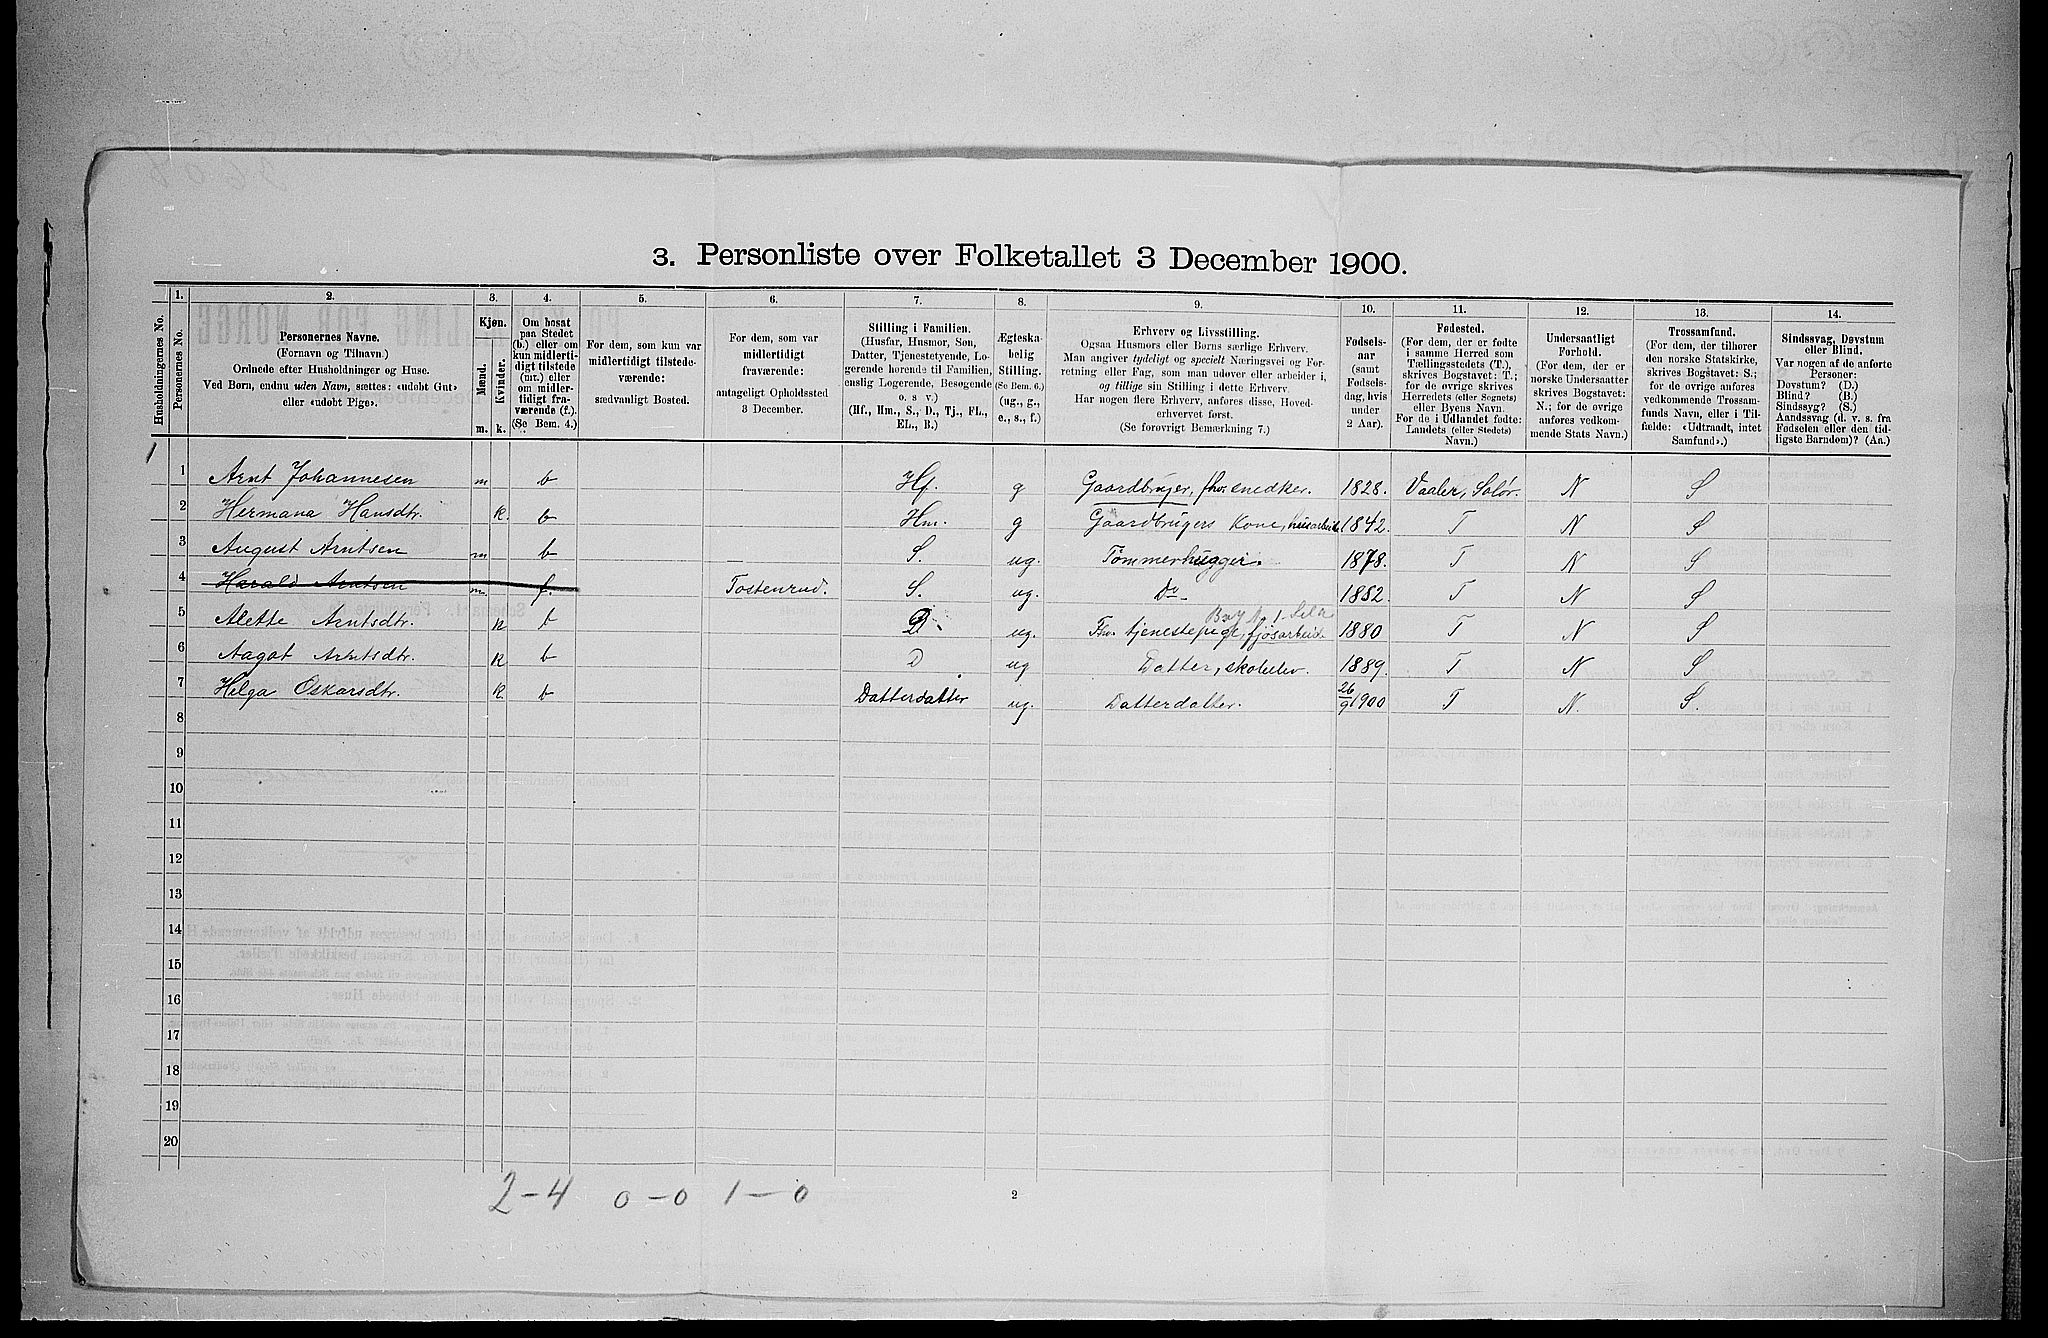 3. Personliste over Folketallet 3 December 1900.
Husholdningernes No.
1.
Personernes No.
2.
Personernes Navne.
(Fornavn og Tilnavn.)
Ordnede efter Husholdninger og Huse.
Ved Børn, endnu uden Navn, sættes: «udøbt Gut»
eller «udøbt Pige».
3.
Kjøn.
Mænd.
Kvinder.
m.
k.
4.
Om bosat
paa Stedet
(b.) eller om
kun midlerti-
digt tilstede
(mt.) eller
om midler-
tidigt fra-
værende (f.).
(Se Bem. 4.)
5.
For dem, som kun var
midlertidigt tilstede-
værende:
sædvanligt Bosted.
6.
For dem, som var
midlertidigt
fraværende:
antageligt Opholdssted
3 December.
7.
Stilling i Familien.
(Husfar, Husmor, Søn,
Datter, Tjenestetyende, Lo-
gerende hørende til Familien,
enslig Logerende, Besøgende
o. s v.)
(Hf., Hm., S., D., Tj., FL.,
EL., B.)
8.
Ægteska-
belig
Stilling.
(Se Bem. 6.)
(ug., g.,
e., s., f.)
9.
Erhverv og Livsstilling.
Ogsaa Husmors eller Børns særlige Erhverv.
Man angiver tydeligt og specielt Næringsvei og For-
retning eller Fag, som man udøver eller arbeider i,
og tillige sin Stilling i dette Erhverv.
Har nogen flere Erhverv, anføres disse, Hoved-
erhvervet først.
(Se forøvrigt Bemærkning 7.)
10.
Fødsels-
aar
(samt
Fødsels-
dag, hvis
under
2 Aar).
11.
Fødested.
(For dem, der er fødte
i samme Herred som
Tællingsstedets (T.),
skrives Bogstavet: T.;
for de øvrige skrives
Herredets (eller Sognets)
eller Byens Navn.
For de i Udlandet fødte:
Landets (eller Stedets)
Navn.)
12.
Undersaatligt
Forhold.
(For dem, der er
norske Undersaatter
skrives Bogstavet:
N.; for de øvrige
anføres vedkom-
mende Stats Navn.)
13.
Trossamfund.
(For dem, der tilhører
den norske Statskirke,
skrives Bogstavet: S.;
for de øvrige anføres
vedkommende Trossam-
funds Navn, eller i Til-
fælde: «Udtraadt, intet
Samfund».)
14.
Sindssvag, Døvstum
eller Blind.
Var nogen af de anførte
Personer:
Døvstum? (D.)
Blind? (B.)
Sindssyg? (S.)
Aandssvag (d. v. s. fra
Fødselen eller den tid-
ligste Barndom)? (Aa.)
1 1 Arnt Johannesen m b Hf. g Gaardbruger, fhv. snedker. 1828. Vaaler, Solør. N S
2 Hermana Hansdtr. k. b Hm. g Gaardbrugers Kone, husarbeide 1842. T N S
3 August Arntsen m b S. ug. Tømmerhugger. 1878. T N S
4 Harald Arntsen m. f. Tostenrud. S. ug. Do 1882. T N S
5 Alette Arntsdtr. k b D. ug. Fhv. tjenestepige, fjøsarbeid. 1880 T N S
6 Aagot Arntsdtr. k b D ug Datter, skoleelev. 1889. T N S
7 Helga Oskarsdtr. k b Datterdatter ug. Datterdatter. 26/9 1900 T N. S.
8
9
10
11
12
13
14
15
16
17
18
19
20
2-4 0-0 1-0
2